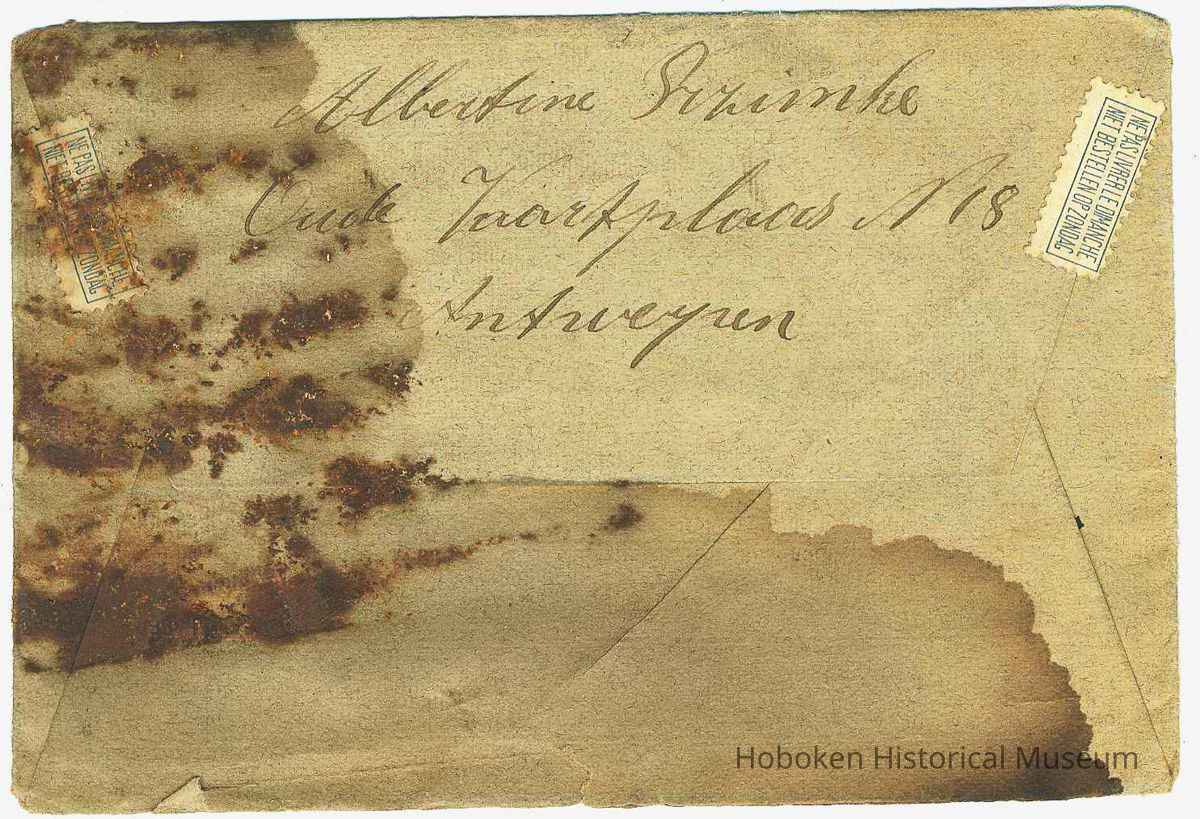 Albertine Brzimke
Oude Vaartplaats N 18
Antwerpen
NE PAS LIVRER LE DIMANCHE
NIET BESTELLEN OP ZONDAG
NE PAS DIMANCHE
ZONDAG
Hoboken Historical Museum